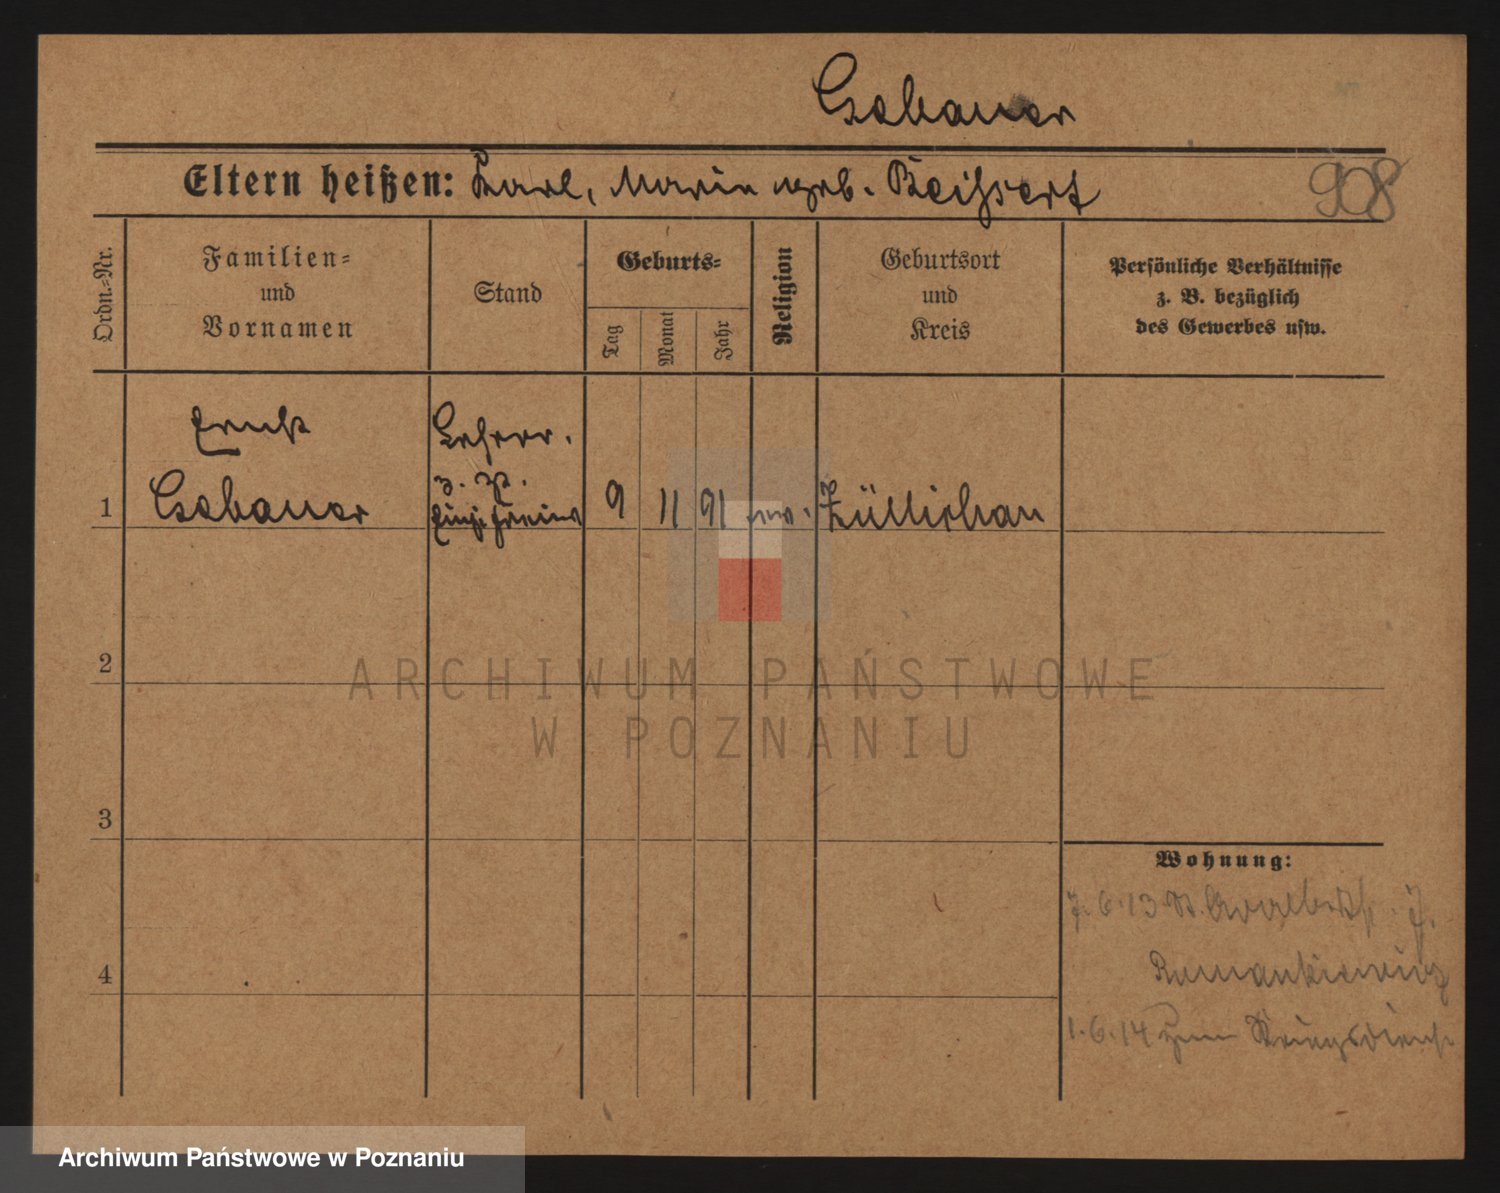 Gebauer
Eltern heißen: Karl, Marie geb. Reichert
908
Ordn.-Nr.
Familien=
und
Vornamen
Stand
Geburts=
Tag
Monat
Jahr
Religion
Geburtsort
und
Kreis
Persönliche Verhältnisse
z. B. bezüglich
des Gewerbes usw.
1
Ernst
Gebauer
Lehrer.
z. Zt.
Einj. Freiw
9
11
91
ev.
Züllichau
2
3
4
Wohnung:
7.6.13 St. Adalbertstr. 7.
1.6.14 zum Kriegsdienst
ARCHIWUM PAŃSTWOWE
W POZNANIU
Archiwum Państwowe w Poznaniu